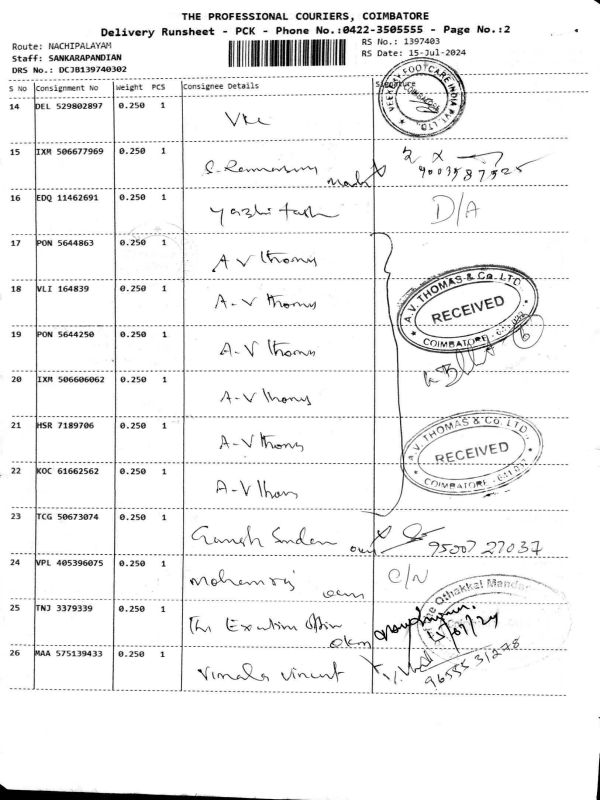 THE PROFESSIONAL COURIERS, COIMBATORE
Delivery Runsheet - PCK - Phone No.:0422-3505555 - Page No.:2
Route: NACHIPALAYAM
RS No.: 1397403
Staff: SANKARAPANDIAN
RS Date: 15-Jul-2024
DRS No.: DCJB139740302
S No Consignment No Weight PCS Consignee Details Signature
14 DEL 529802897 0.250 1 VKC
VEEKESY FOOTCARE INDIA PVT. LTD. COIMBATORE
15 IXM 506677969 0.250 1
9003587525
16 EDQ 11462691 0.250 1 D/A
17 PON 5644863 0.250 1 A V Thomas
18 VLI 164839 0.250 1 A-V Thomas
A.V. THOMAS & Co. LTD.
RECEIVED
COIMBATORE
19 PON 5644250 0.250 1 A-V Thomas
20 IXM 506606062 0.250 1 A-V Thomas
21 HSR 7189706 0.250 1 A-V Thomas
A.V. THOMAS & Co. LTD.,
RECEIVED
COIMBATORE
22 KOC 61662562 0.250 1 A-V Thomas
23 TCG 50673074 0.250 1 Ganesh
95007 27037
24 VPL 405396075 0.250 1 Mohanraj C/N
25 TNJ 3379339 0.250 1 The Executive Officer
Othakkal Mandap
15/07/24
26 MAA 575139433 0.250 1 Vimala Vincent
9655531278